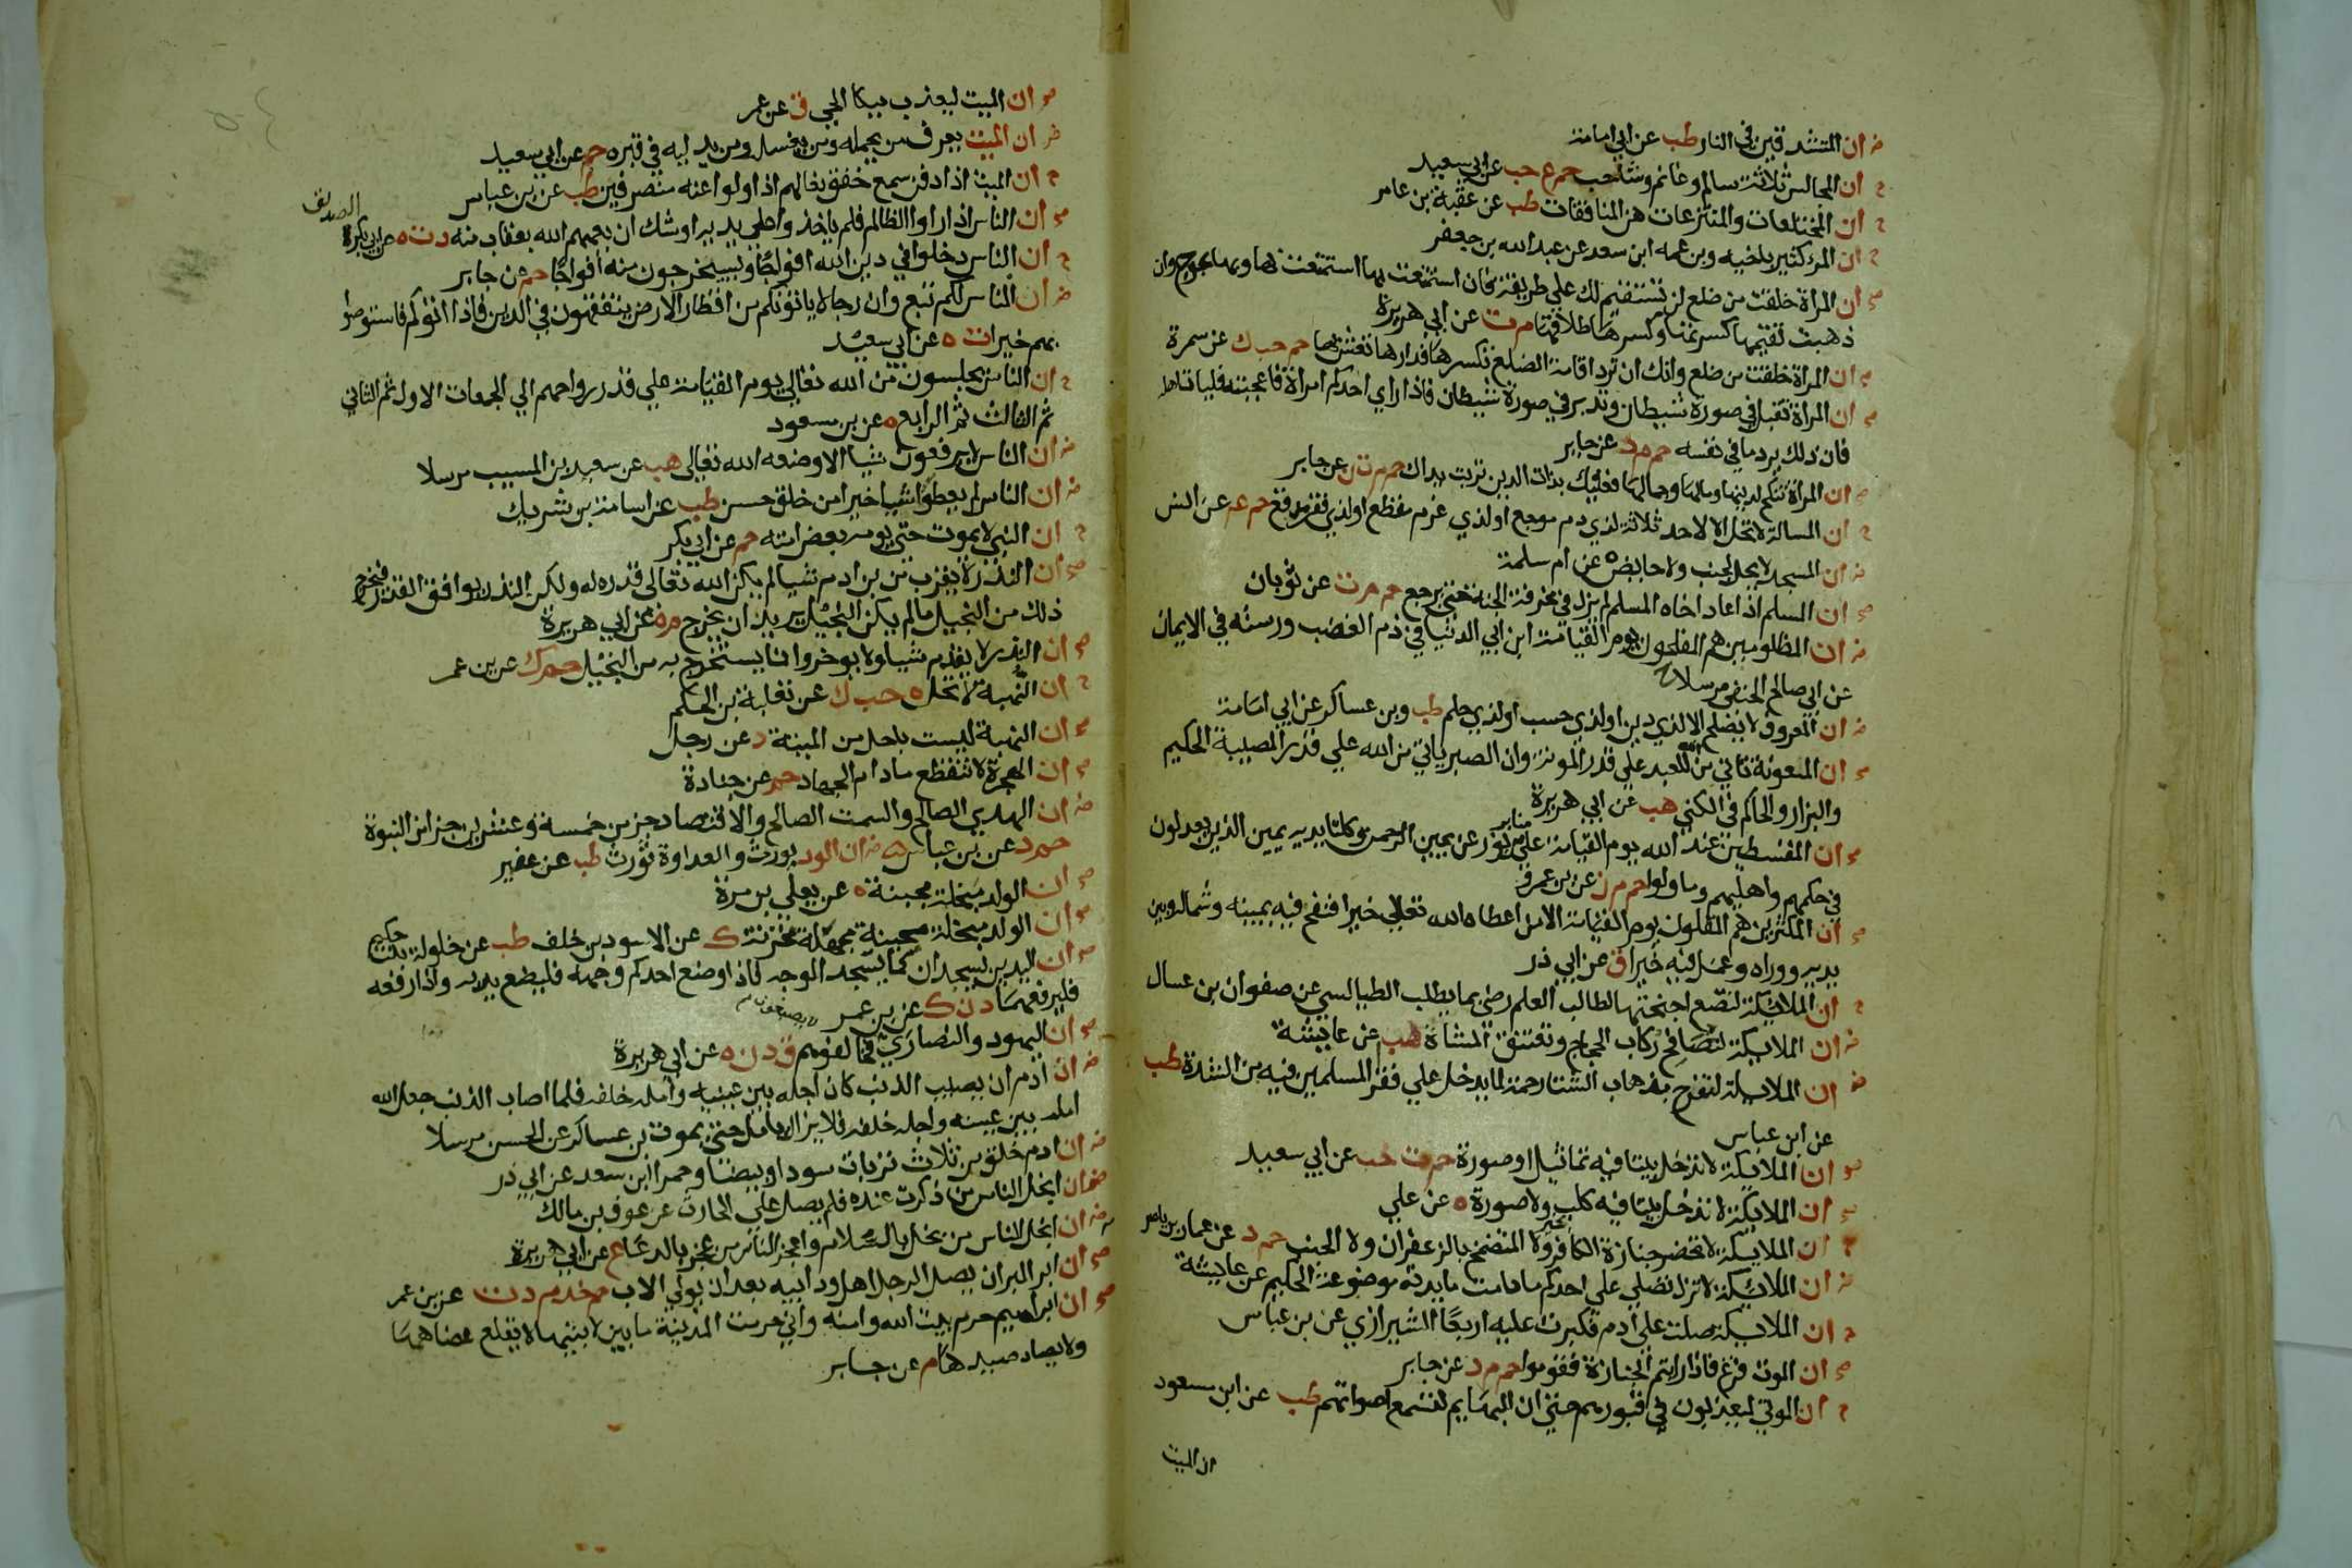 ان المتشدقين في النار طب عن ابي امامة
ان المجالس ثلاثة سالم وغانم وشاحب حم ع حب عن ابي سعيد
ان المختلعات والمنتزعات هن المنافقات طب عن عقبة بن عامر
ان المرء كثير باخيه وبن عمه ابن سعد عن عبد الله بن جعفر
ان المراة خلقت من ضلع لن تستقيم لك على طريقة فان استمتعت بها استمتعت بها وبها عوج وان
ذهبت تقيمها كسرتها وكسرها طلاقها م ت عن ابي هريرة
ان المراة خلقت من ضلع وانك ان ترد اقامة الضلع تكسرها فدارها تعش بها حم حب ك عن سمرة
ان المراة تقبل في صورة شيطان وتدبر في صورة شيطان فاذا راي احدكم امراة فاعجبته فليات اهله
فان ذلك يرد ما في نفسه حم م د عن جابر
ان المراة تنكح لدينها ومالها وجمالها فعليك بذات الدين تربت يداك حم م ت ن عن جابر
ان المسالة لا تحل الا لاحد ثلاثة لذي دم موجع او لذي غرم مفظع او لذي فقر مدقع حم عه عن انس
ان المسجد لا يحل لجنب ولا حايض ه عن ام سلمة
ان المسلم اذا عاد اخاه المسلم لم يزل في مخرفة الجنة حتى يرجع حم م ت عن ثوبان
ان المظلومين هم المفلحون يوم القيامة ابن ابي الدنيا في ذم الغضب ورسته في الايمان
عن ابي صالح الحنفي مرسلا
ان المعروف لا يصلح الا لذي دين او لذي حسب او لذي حلم طب وبن عساكر عن ابي امامة
ان المعونة تاتي من الله للعبد على قدر المونة وان الصبر ياتي من الله على قدر المصيبة الحكيم
والبزار والحاكم في الكنى هب عن ابي هريرة
ان المقسطين عند الله يوم القيامة على منابر من نور عن يمين الرحمن وكلتا يديه يمين الذين يعدلون
في حكمهم واهليهم وما ولوا حم م ن عن بن عمرو
ان المكثرين هم المقلون يوم القيامة الا من اعطاه الله تعالى خيرا فنفح فيه بيمينه وشماله وبين
يديه ووراه وعمل فيه خيرا ق عن ابي ذر
ان الملايكة لتضع اجنحتها لطالب العلم رضى بما يطلب الطيالسي عن صفوان بن عسال
ان الملايكة لتصافح ركاب الحجاج وتعتنق المشاة هب عن عايشة
ان الملايكة لتفرح بذهاب الشتا رحمة لما يدخل على فقرا المسلمين فيه من الشدة طب
عن ابن عباس
ان الملايكة لا تدخل بيتا فيه تماثيل او صورة حم ت حب عن ابي سعيد
ان الملايكة لا تدخل بيتا فيه كلب ولا صورة ه عن علي
ان الملايكة لا تحضر جنازة الكافر بخير ولا المتضمخ بالزعفران ولا الجنب حم د عن عمار بن ياسر
ان الملايكة لا تزال تصلي على احدكم ما دامت مايدته موضوعة الحكيم عن عايشة
ان الملايكة صلت على ادم فكبرت عليه اربعا الشيرازي عن بن عباس
ان الموت فزع فاذا رايتم الجنازة فقوموا حم م د عن جابر
ان الموتى ليعذبون في قبورهم حتى ان البهايم لتسمع اصواتهم طب عن ابن مسعود
ان الميت
ان الميت ليعذب ببكا الحي ق عن عمر
ان الميت يعرف من يحمله ومن يغسله ومن يدليه في قبره حم عن ابي سعيد
ان الميت اذا دفن سمع خفق نعالهم اذا ولوا عنه منصرفين طب عن بن عباس
ان الناس اذا راوا الظالم فلم ياخذوا على يديه اوشك ان يعمهم الله بعقاب منه د ت ه عن ابي بكر
الصديق
ان الناس دخلوا في دين الله افواجا وسيخرجون منه افواجا حم عن جابر
ان الناس لكم تبع وان رجالا ياتونكم من اقطار الارض يتفقهون في الدين فاذا اتوكم فاستوصوا
بهم خيرا ت ه عن ابي سعيد
ان الناس يجلسون من الله تعالى يوم القيامة على قدر رواحهم الى الجمعات الاول ثم الثاني
ثم الثالث ثم الرابع ه عن بن مسعود
ان الناس لا يرفعون شيا الا وضعه الله تعالى هب عن سعيد بن المسيب مرسلا
ان الناس لم يعطوا شيا خيرا من خلق حسن طب عن اسامة بن شريك
ان النبي لا يموت حتى يومه بعض امته حم عن ابي بكر
ان النذر لا يقرب من بن ادم شيا لم يكن الله تعالى قدره له ولكن النذر يوافق القدر فيخرج
ذلك من البخيل ما لم يكن البخيل يريد ان يخرج م ه عن ابي هريرة
ان النذر لا يقدم شيا ولا يوخر وانما يستخرج به من البخيل حم ك عن بن عمر
ان النهبة لا تحل ه حب ك عن ثعلبة بن الحكم
ان النهبة ليست باحل من الميتة د عن رجل
ان الهجرة لا تنقطع ما دام الجهاد حم عن جنادة
ان الهدي الصالح والسمت الصالح والاقتصاد جز من خمسة وعشرين جزا من النبوة
حم د عن بن عباس ان الود يورث والعداوة تورث طب عن عفير
ان الولد مبخلة مجبنة ه عن يعلى بن مرة
ان الولد مبخلة مجبنة مجهلة محزنة ك عن الاسود بن خلف طب عن خولة بنت حكيم
ان اليدين يسجدان كما يسجد الوجه فاذا وضع احدكم وجهه فليضع يديه واذا رفعه
فليرفعهما د ن ك عن بن عمر
ان اليهود والنصارى لا يصبغون فخالفوهم ق د ن ه عن ابي هريرة
ان ادم قبل ان يصيب الذنب كان اجله بين عينيه وامله خلفه فلما اصاب الذنب جعل الله
امله بين عينيه واجله خلفه فلا يزال يامل حتى يموت بن عساكر عن الحسن مرسلا
ان ادم خلق من ثلاث تربات سودا وبيضا وحمرا ابن سعد عن ابي ذر
ان ابخل الناس من ذكرت عنده فلم يصل علي الحارث عن عوف بن مالك
ان ابخل الناس من بخل بالسلام واعجز الناس من عجز بالدعا ع عن ابي هريرة
ان ابر البر ان يصل الرجل اهل ود ابيه بعد ان يولي الاب حم خد م د ت عن بن عمر
ان ابراهيم حرم بيت الله وامنه واني حرمت المدينة ما بين لابتيها لا يقلع عضاهها
ولا يصاد صيدها م عن جابر